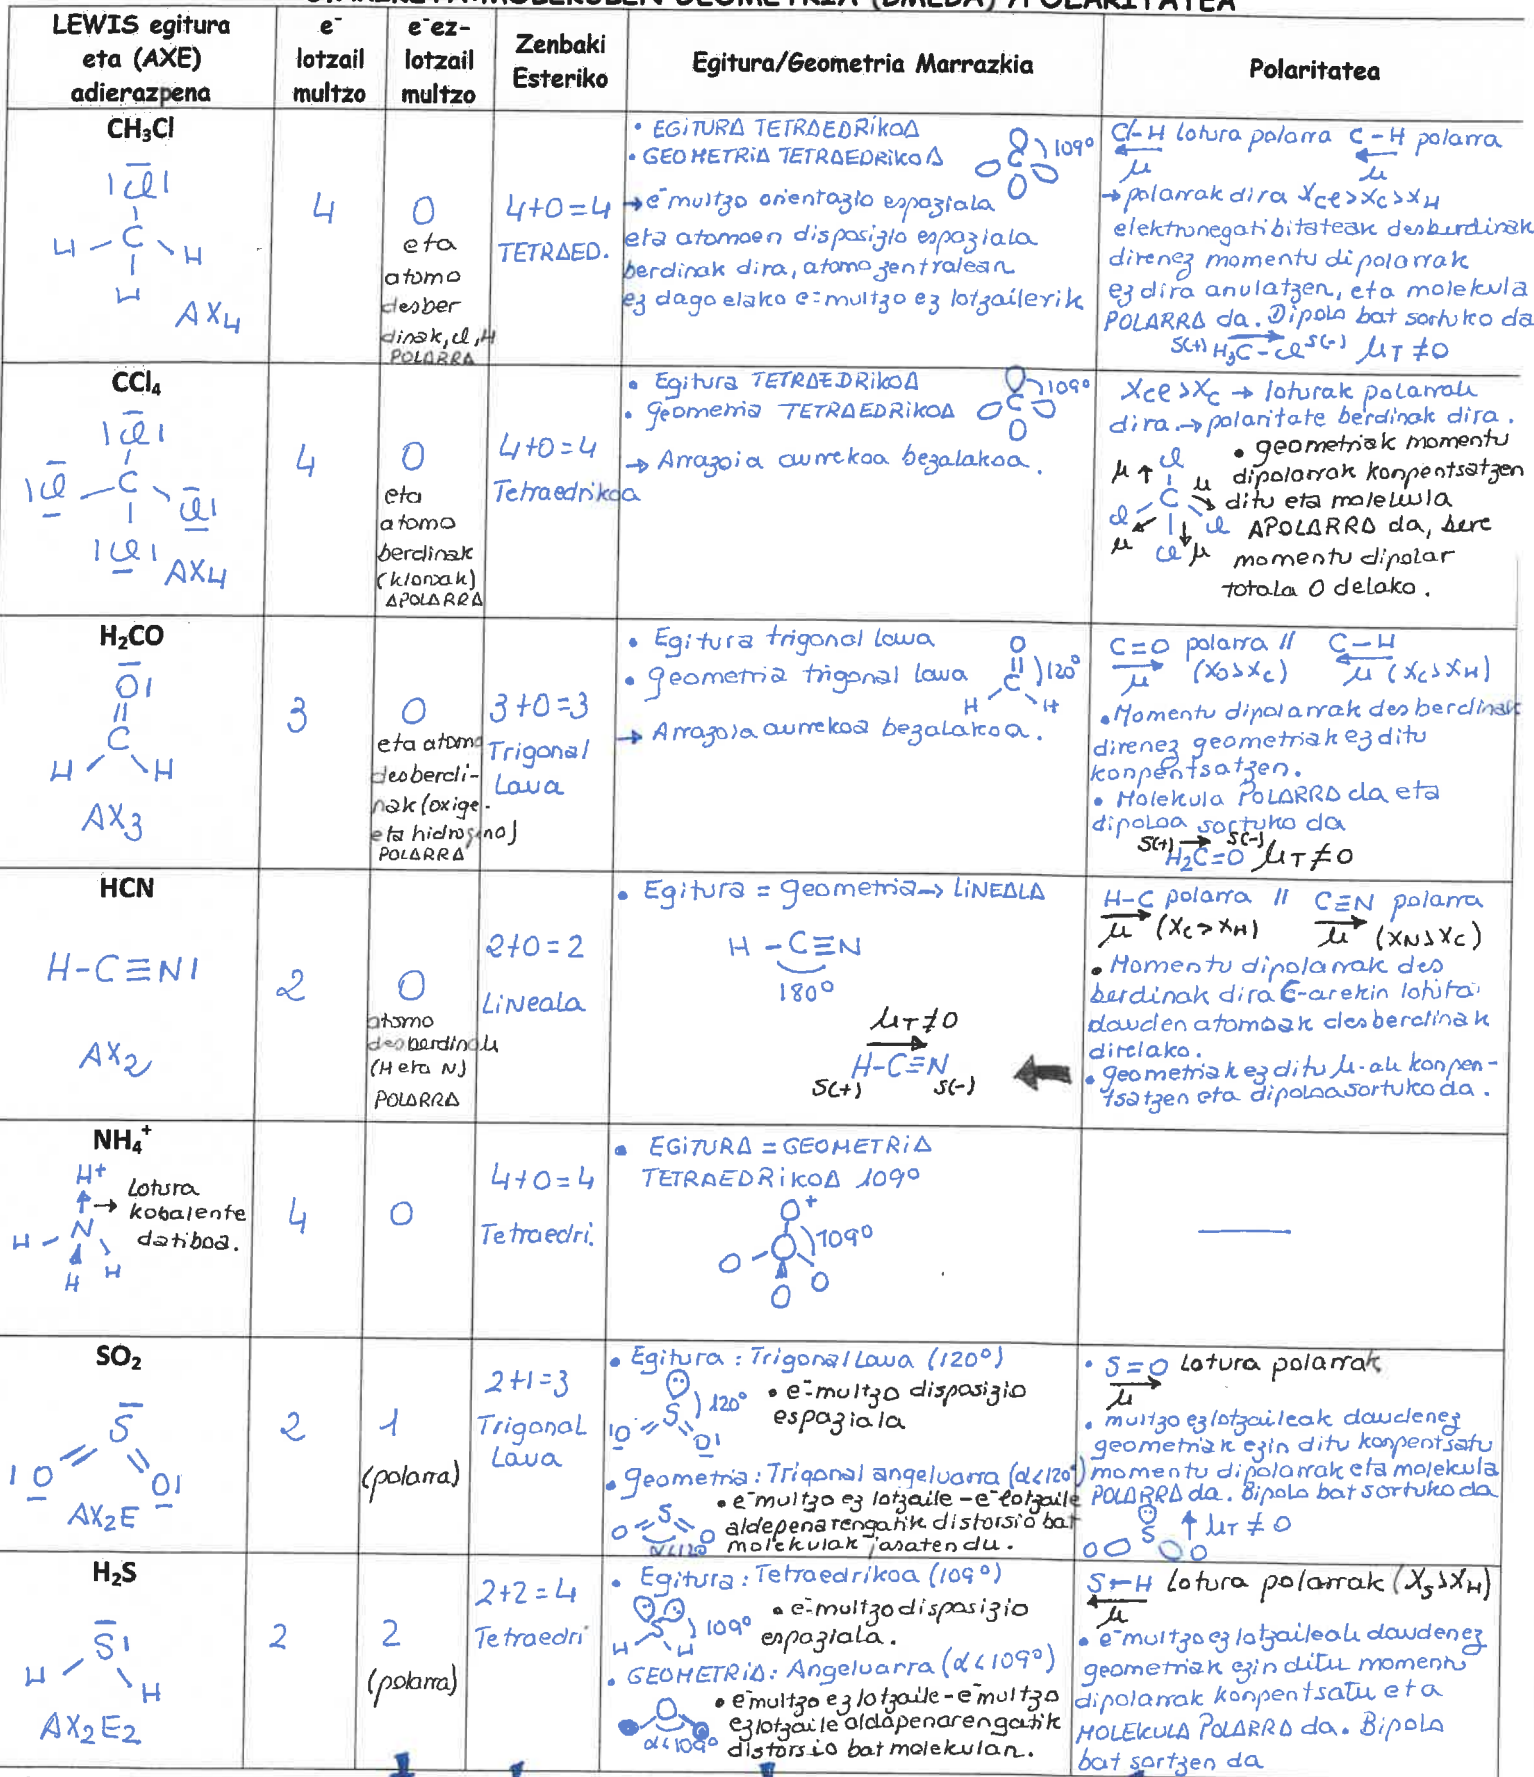 LEWIS egitura
eta (AXE)
adierazpena
e⁻
lotzail
multzo
e⁻ez-
lotzail
multzo
Zenbaki
Esteriko
Egitura/Geometria Marrazkia
Polaritatea
CH₃Cl
Cl
H C H
H
AX₄
4
0
eta
atomo
desber
dinak, Cl, H
POLARRA
4+0=4
TETRAED.
• EGITURA TETRAEDRIKOA
• GEOMETRIA TETRAEDRIKOA
C
109°
→ e⁻multzo orientazio espaziala
eta atomoen disposizio espaziala
berdinak dira, atomo zentralean
ez dago elako e⁻multzo ez lotzailerik
Cl-H lotura polarra C-H polarra
μ μ
→ polarrak dira χCl>χC>χH
elektronegatibitateak desberdinak
direnez momentu dipolarrak
ez dira anulatzen, eta molekula
POLARRA da. Dipolo bat sortuko da
δ(+) H₃C-Cl δ(-) μT≠0
CCl₄
Cl
Cl C Cl
Cl
AX₄
4
0
eta
atomo
berdinak
(kloroak)
APOLARRA
4+0=4
Tetraedrikoa
• Egitura TETRAEDRIKOA
• geometria TETRAEDRIKOA
C
109°
→ Arrazoia aurrekoa bezalakoa.
χCl>χC → loturak polarrak
dira → polaritate berdinak dira.
• geometriak momentu
dipolarrak konpentsatzen
ditu eta molekula
APOLARRA da, bere
momentu dipolar
totala 0 delako.
μ Cl μ
Cl C Cl
μ Cl μ
H₂CO
O
C
H H
AX₃
3
0
eta atomo
desberdi-
nak (oxige.
eta hidrogeno)
POLARRA
3+0=3
Trigonal
Laua
• Egitura trigonal laua
• geometria trigonal laua
O
C
120°
H H
→ Arrazoia aurrekoa bezalakoa.
C=O polarra // C-H
μ (χO>χC) μ (χC>χH)
• Momentu dipolarrak desberdinak
direnez geometriak ez ditu
konpentsatzen.
• Molekula POLARRA da eta
dipoloa sortuko da
δ(+) δ(-)
H₂C=O μT≠0
HCN
H-C≡N|
AX₂
2
0
atomo
desberdinak
(H eta N)
POLARRA
2+0=2
Lineala
• Egitura = geometria → LINEALA
H-C≡N
180°
μT≠0
H-C≡N
δ(+) δ(-)
H-C polarra // C≡N polarra
μ (χC>χH) μ (χN>χC)
• Momentu dipolarrak des
berdinak dira C-arekin lotuta
dauden atomoak desberdinak
direlako.
• geometriak ez ditu μ-ak konpen-
tsatzen eta dipoloa sortuko da.
NH₄⁺
H⁺
→ Lotura
kobalente
datiboa.
H N
H H
4
0
4+0=4
Tetraedri.
• EGITURA = GEOMETRIA
TETRAEDRIKOA 109°
+
109°
SO₂
S
O O
AX₂E
2
1
(polarra)
2+1=3
Trigonal
Laua
• Egitura: Trigonal Laua (120°)
S
120°
O O
• e⁻multzo disposizio
espaziala
• geometria: Trigonal angeluarra (α<120°)
• e⁻multzo ez lotzaile - e⁻lotzaile
aldapenarengatik distorsio bat
molekulak jasaten du.
O S O
α<120
• S=O Lotura polarrak
μ
• multzo ez lotzaileak daudenez
geometriak ezin ditu konpentsatu
momentu dipolarrak eta molekula
POLARRA da. Bipolo bat sortuko da
S
O O
μT≠0
H₂S
S
H H
AX₂E₂
2
2
(polarra)
2+2=4
Tetraedri
• Egitura: Tetraedrikoa (109°)
H S H
109°
• e⁻multzo disposizio
espaziala.
• GEOMETRIA: Angeluarra (α<109°)
• e⁻multzo ez lotzaile - e⁻multzo
ez lotzaile aldapenarengatik
distorsio bat molekulan.
α<109°
S-H Lotura polarrak (χS>χH)
μ
• e⁻multzo ez lotzaileak daudenez
geometriak ezin ditu momentu
dipolarrak konpentsatu eta
MOLEKULA POLARRA da. Bipolo
bat sortzen da